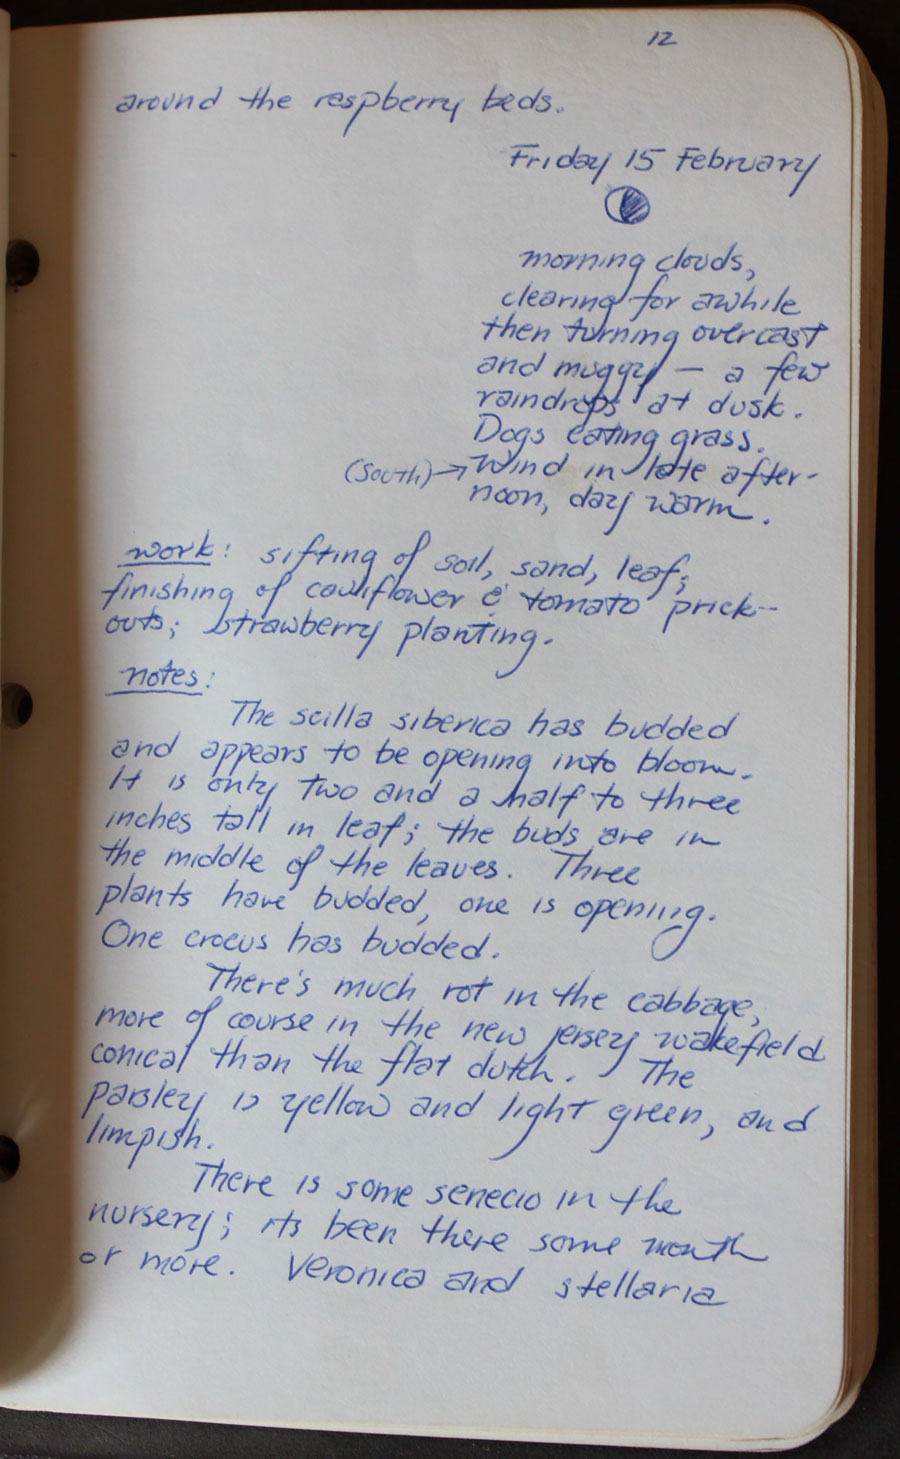 12
around the raspberry beds.
Friday 15 February
morning clouds,
clearing for awhile
then turning overcast
and muggy — a few
raindrops at dusk.
Dogs eating grass.
(South) → Wind in late after-
noon, day warm.
work: sifting of soil, sand, leaf;
finishing of cauliflower & tomato prick-
outs; strawberry planting.
notes:
The scilla siberica has budded
and appears to be opening into bloom.
It is only two and a half to three
inches tall in leaf; the buds are in
the middle of the leaves. Three
plants have budded, one is opening.
One crocus has budded.
There's much rot in the cabbage,
more of course in the new jersey wakefield
conical than the flat dutch. The
parsley is yellow and light green, and
limpish.
There is some senecio in the
nursery; its been there some month
or more. Veronica and stellaria